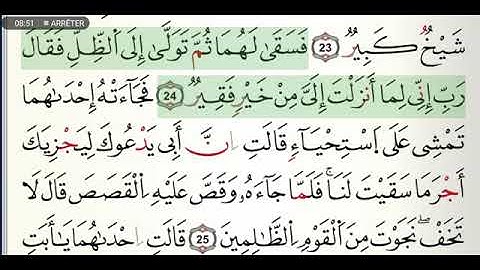 08:51 ■ ARRÊTER
شَيْخٌ كَبِيرٌ 23 فَسَقَىٰ لَهُمَا ثُمَّ تَوَلَّىٰ إِلَى اَلظِّلِّ فَقَالَ
رَبِّ إِنِّي لِمَا أَنزَلْتَ إِلَيَّ مِنْ خَيْرٍ فَقِيرٌ 24 فَجَآءَتْهُ إِحْدَىٰهُمَا
تَمْشِي عَلَى اَسْتِحْيَآءٍ قَالَتِ اِنَّ أَبِي يَدْعُوكَ لِيَجْزِيَكَ
أَجْرَ مَا سَقَيْتَ لَنَا فَلَمَّا جَآءَهُ وَقَصَّ عَلَيْهِ اِلْقَصَصَ قَالَ لَا
تَخَفْ نَجَوْتَ مِنَ اَلْقَوْمِ اِلظَّٰلِمِينَ 25 قَالَتِ اِحْدَىٰهُمَا يَٰأَبَتِ